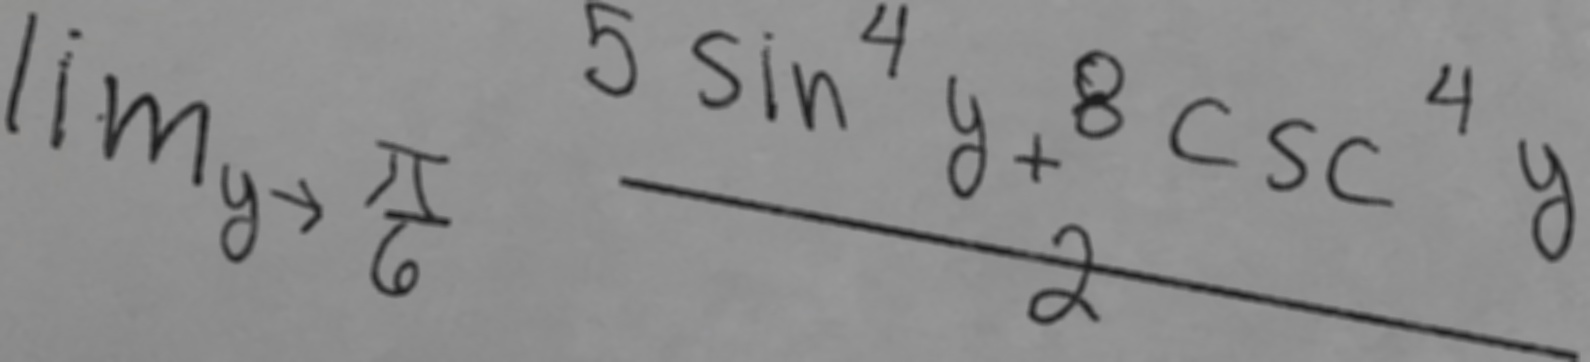 \lim_{y \to \frac{\pi}{6}} \frac{5 \sin^4 y + 8 \csc^4 y}{2}